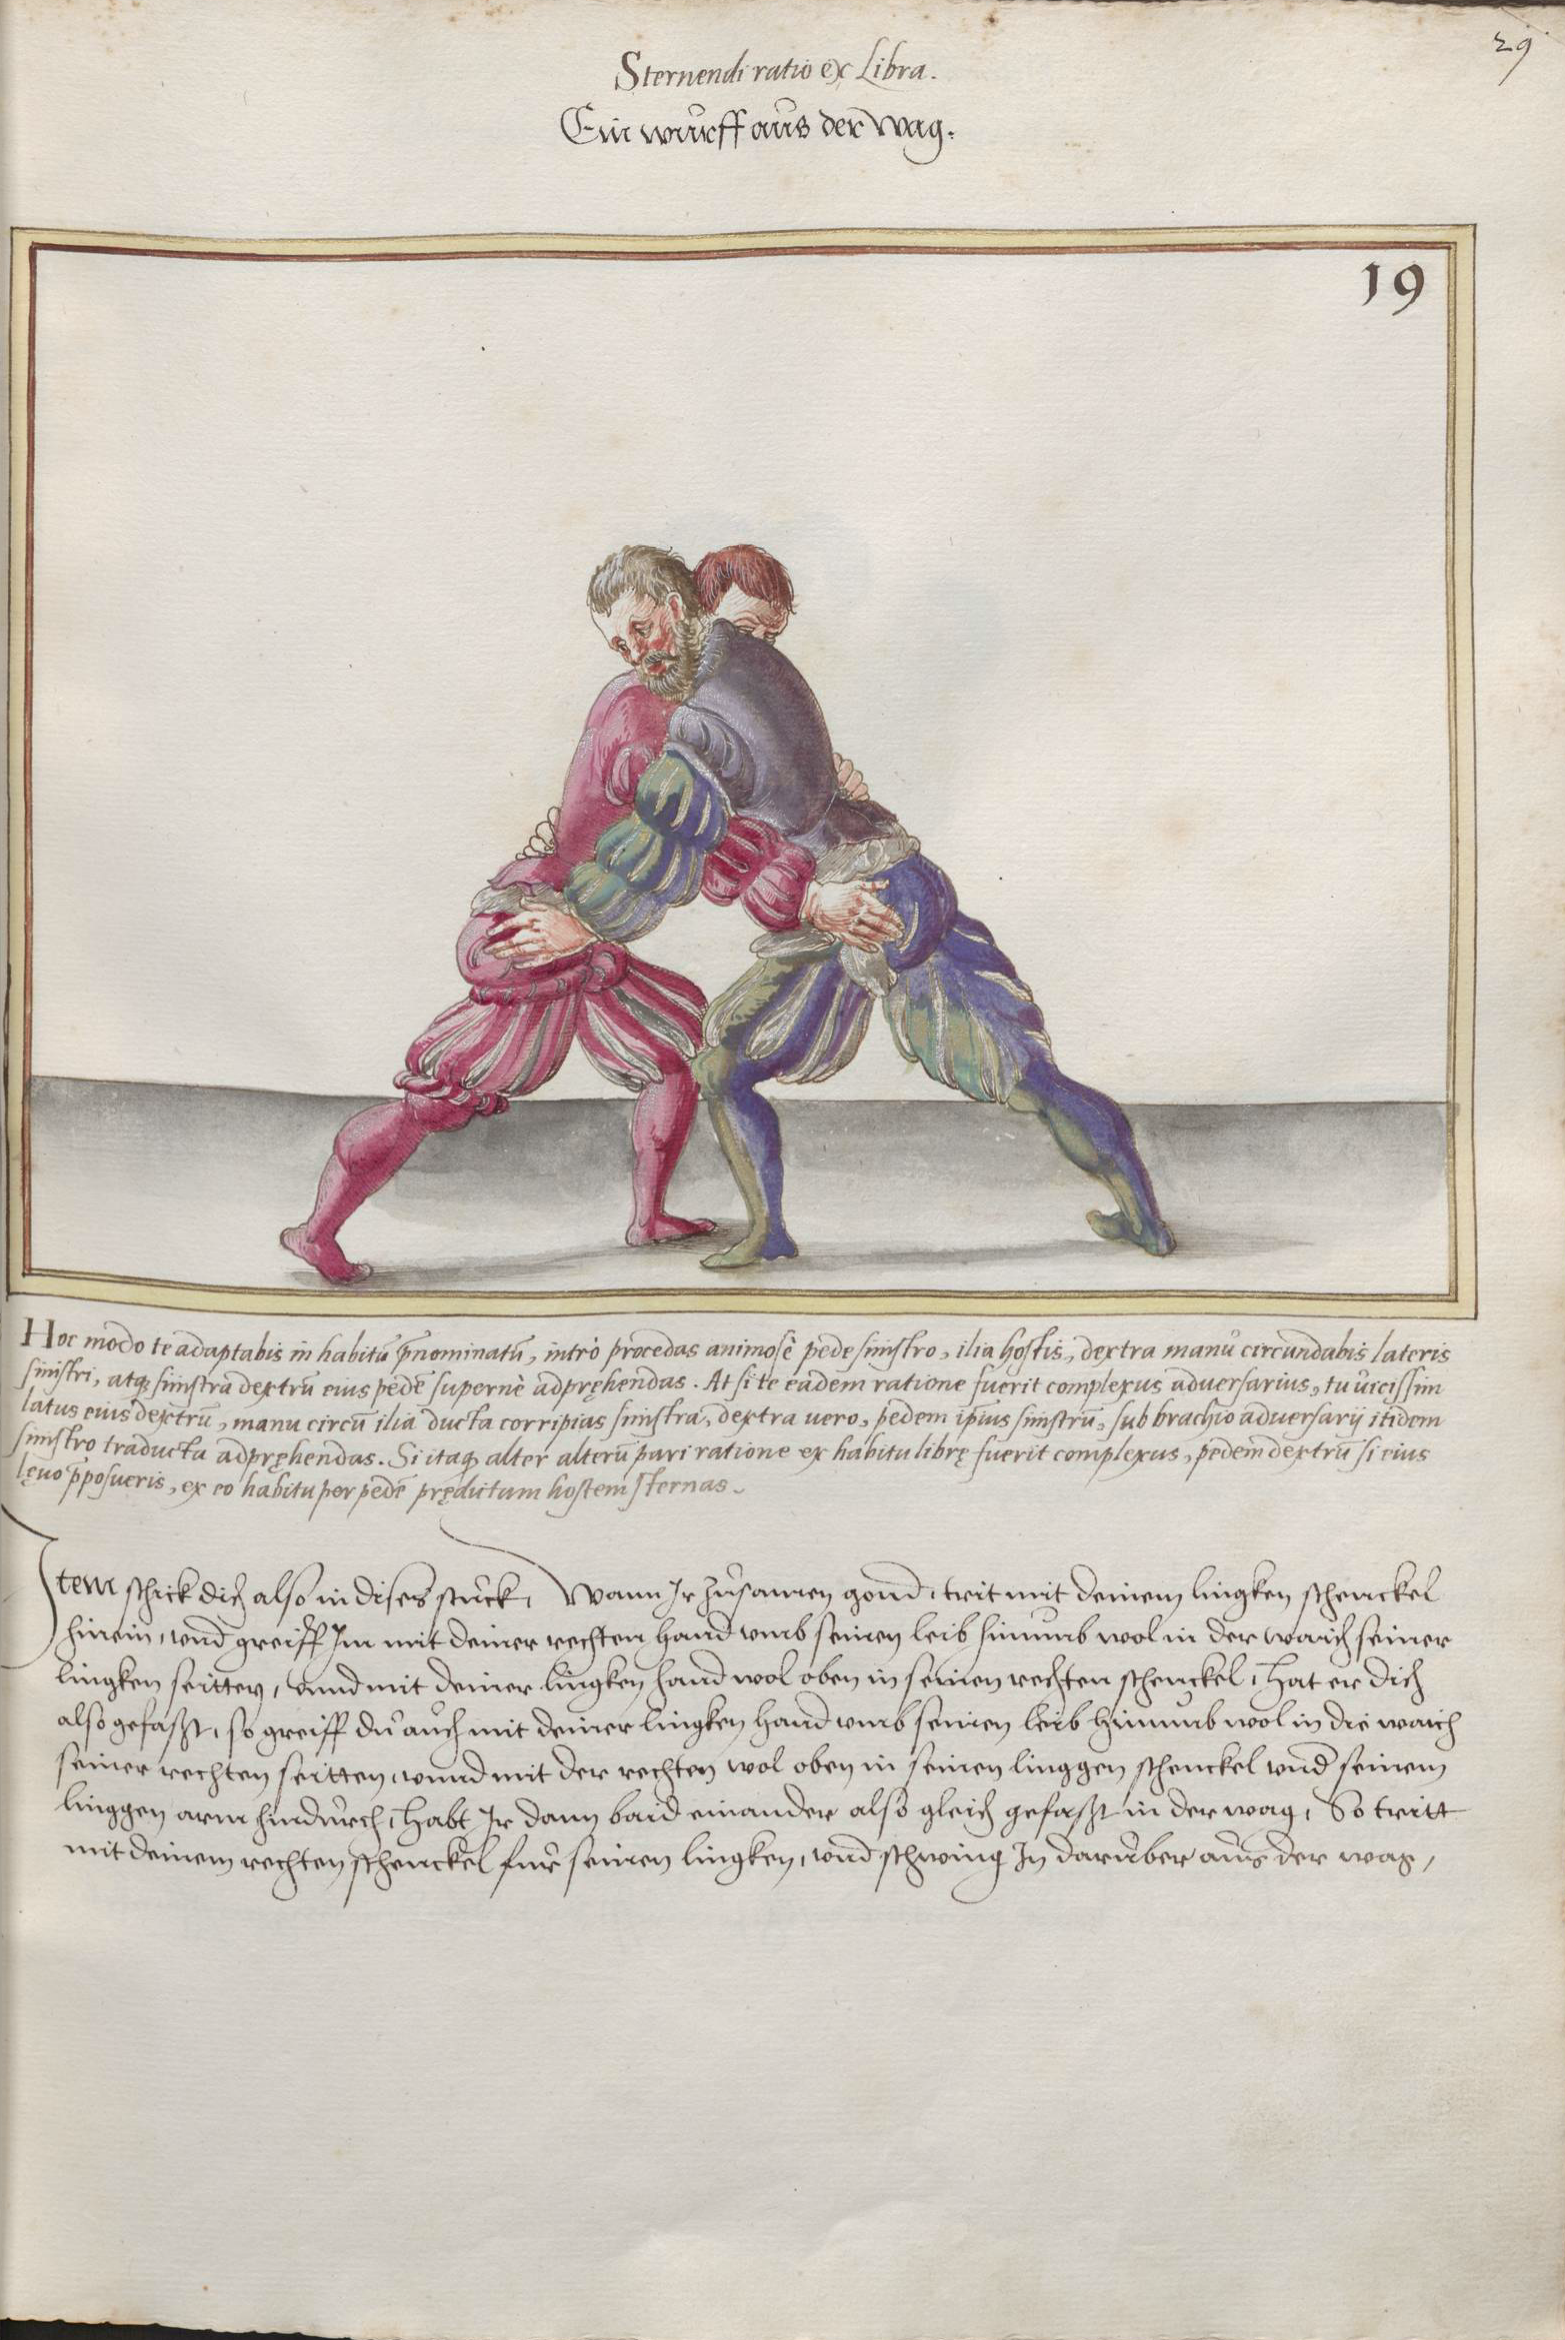 29
Sternendi ratio ex Libra.
Ein wurff aus der wag.
19
Hoc modo te adaptabis in habitū p̄nominatū, intrò procedas animosè pede sinistro, ilia hostis, dextra manu circundabis lateris
sinistri, atq; sinistra dextrū eius pedē supernè adpręhendas. At si te eadem ratione fuerit complexus adversarius, tu vicissim
latus eius dextrū, manu circū ilia ducta corripias sinistra, dextra uero, pedem ip̄ius sinistrū, sub brachio adversarij itidem
sinistro traducta adpręhendas. Si itaq; alter alterū pari ratione ex habitu librę fuerit complexus, pedem dextrū si eius
lęuo p̄posueris, ex eo habitu per pedē prędictum hostem sternas.
Item schick dich also in dises stuck, Wann Ir zusamen gond, trit mit deinem lingken schenckel
hinein, vnd greiff Im mit deiner rechten hand vmb seinen leib hinumb wol in der waich seiner
lingken seitten, vnnd mit deiner lingken hand wol oben in seinen rechten schenckel, hat er dich
also gefaßt, so greiff du auch mit deiner lingken hand vmb seinen leib hinumb wol in die waich
seiner rechten seitten, vnnd mit der rechten wol oben in seinen linggen schenckel vnd seinem
linggen arm hindurch, habt Ir dann baid einander also gleich gefaßt in der wag, So tritt
mit deinem rechten schenckel fur seinen lingken, vnd schwing In daruber aus der wag,